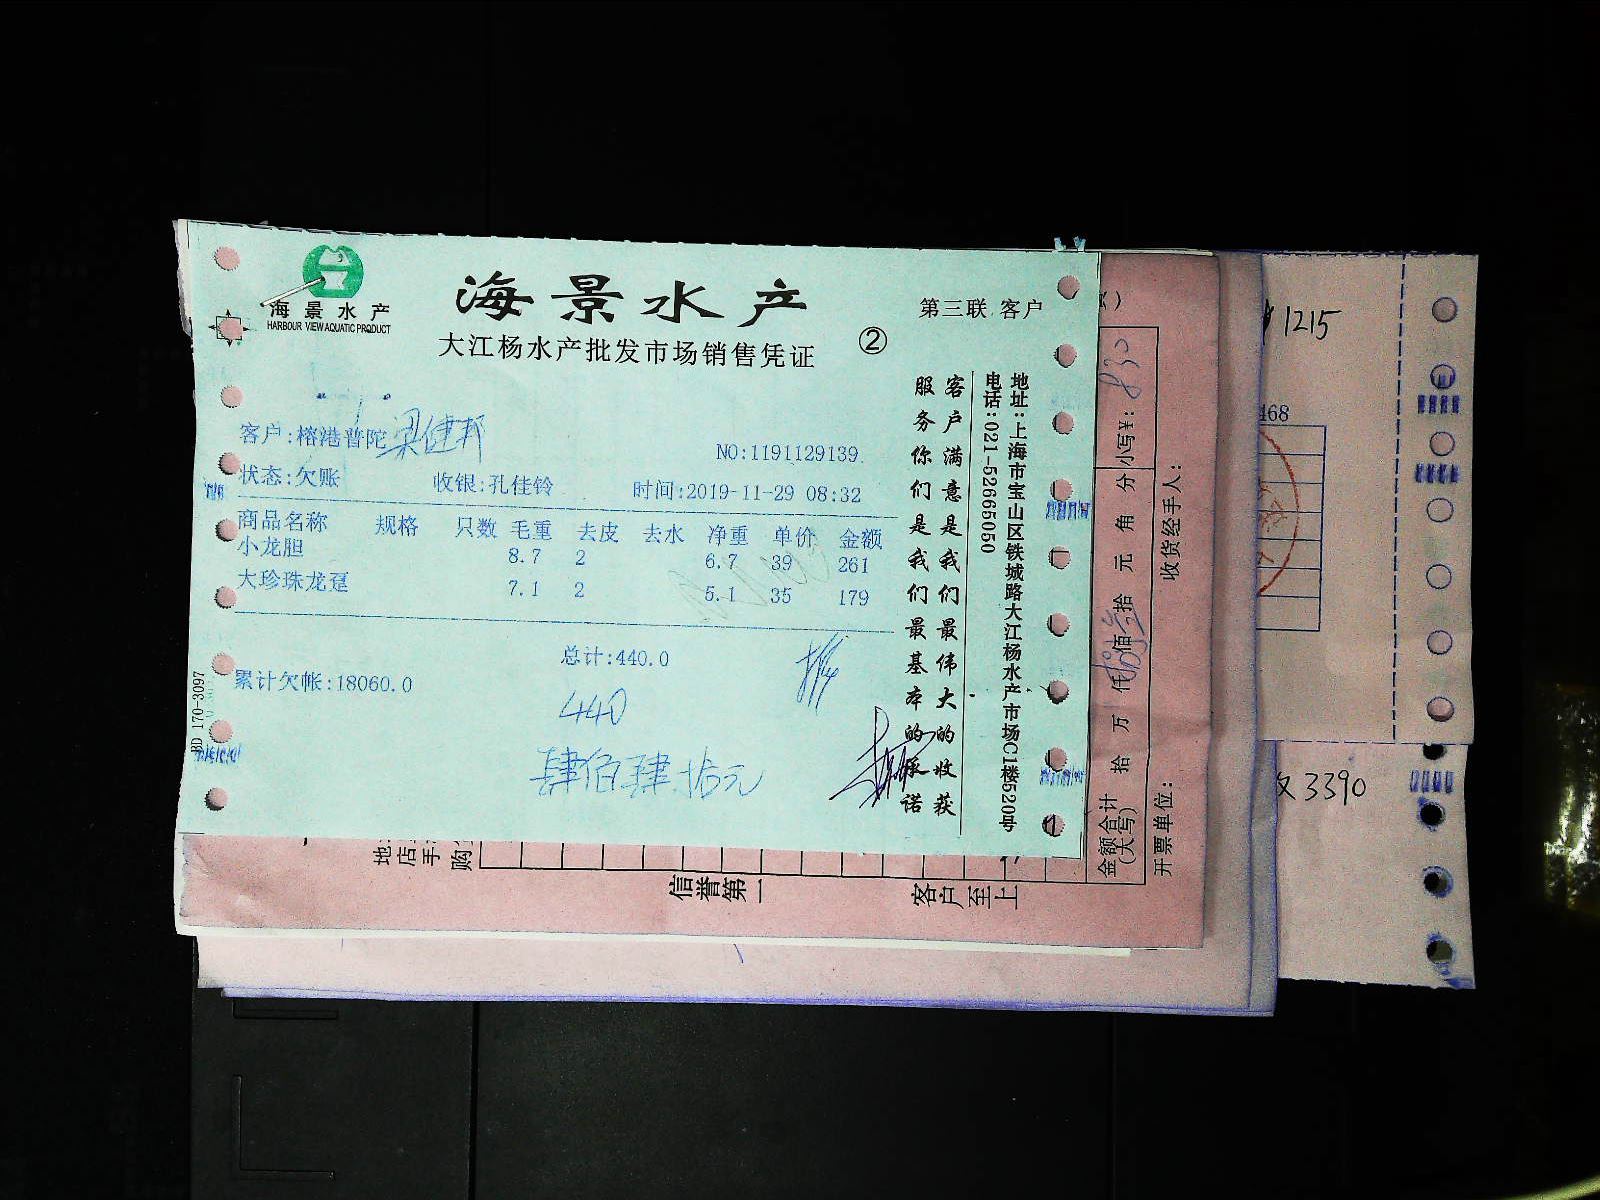 海景水产
HARBOUR VIEW AQUATIC PRODUCT
海景水产
大江杨水产批发市场销售凭证
②
第三联 客户
客户:榕港普陀 梁健邦
NO:1191129139
状态:欠账 收银:孔佳铃 时间:2019-11-29 08:32
商品名称 规格 只数 毛重 去皮 去水 净重 单价 金额
小龙胆 8.7 2 6.7 39 261
大珍珠龙趸 7.1 2 5.1 35 179
总计:440.0
累计欠帐:18060.0
440
肆佰肆拾元
BD 170-3097
客户满意是我们最伟大的收获
服务你们是我们最基本的承诺
地址:上海市宝山区铁城路大江杨水产市场C1楼520号
电话:021-52665050
小写¥: 830
金额合计(大写) 拾 万 仟 佰 拾 元 角 分
收货经手人:
开票单位:
地
店
手
购
信誉第一
客户至上
1215
468
3390